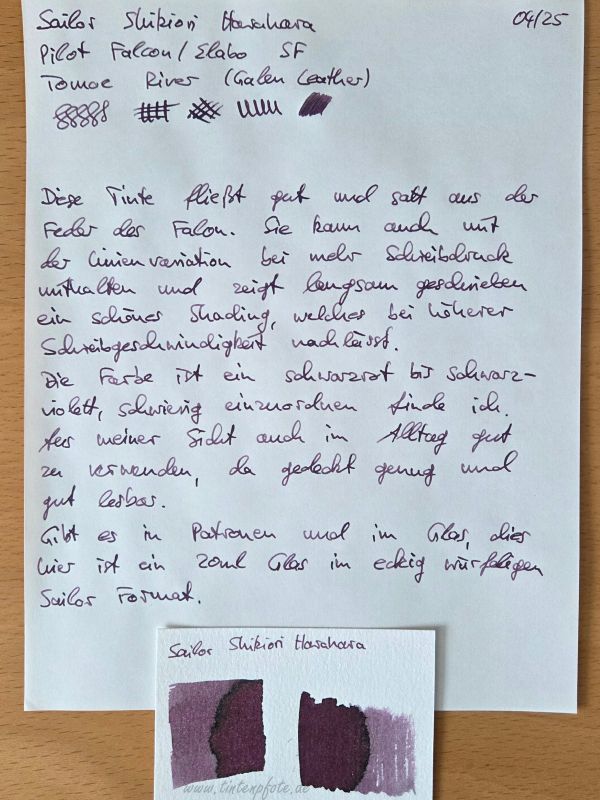 Sailor Shikiori Harahara
04/25
Pilot Falcon/Elabo SF
Tomoe River (Galen Leather)
Diese Tinte fließt gut und satt aus der
Feder des Falcon. Sie kann auch mit
der Linienvariation bei mehr Schreibdruck
mithalten und zeigt langsam geschrieben
ein schönes Shading, welches bei höherer
Schreibgeschwindigkeit nachlässt.
Die Farbe ist ein schwarzrot bis schwarz-
violett, schwierig einzuordnen finde ich.
Aus meiner Sicht auch im Alltag gut
zu verwenden, da gedeckt genug und
gut lesbar.
Gibt es in Patronen und im Glas, dies
hier ist ein 20ml Glas im eckig würfeligen
Sailor Format.
Sailor Shikiori Harahara
www.tintenpfote.de